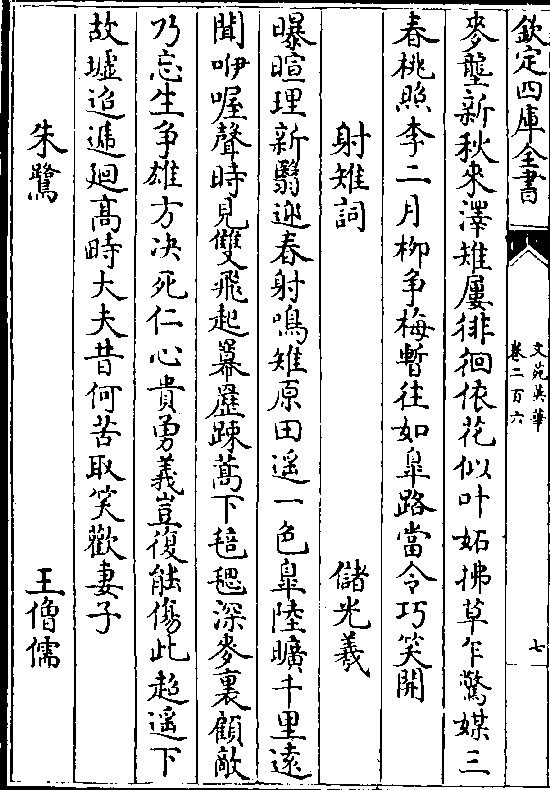 欽定四庫全書
文苑英華
卷二百六
七
麥壟新秋來澤雉屢徘徊依花似叶妬拂草乍驚媒三
春桃照李二月柳争梅暫往如臯路當令巧笑開
射雉詞
儲光羲
曝暄理新翳迎春射鳴雉原田遥一色臯陸曠千里遠
聞咿喔聲時見雙飛起羃䍥踈蒿下毰毸深麥裏顧敵
乃忘生争雄方决死仁心貴勇義豈復能傷此超遥下
故墟迢遞廻髙時大夫昔何苦取笑歡妻子
朱鷺
王僧儒